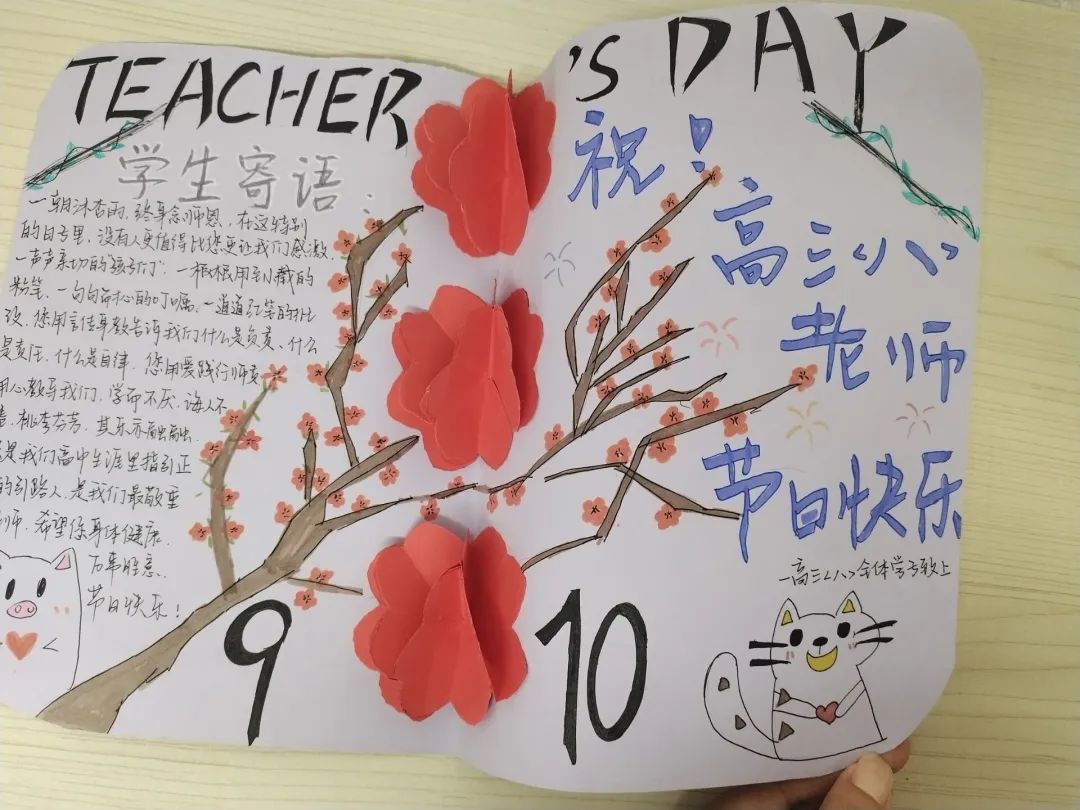 TEACHER
学生寄语.
一朝沐杏雨,终身念师恩,在这特别
的日子里,没有人更值得比您更让我们感激.
一声声亲切的"孩子们":一根根用到截的
粉笔,一句句苦心的叮嘱,一道道红笔的批
改,您用言传身教告诉我们什么是负责、什么
是责任,什么是自律,您用爱践行师责
用心教导我们,学而不厌,诲人不
桃李芬芳,其乐亦融融.
是我们高中生涯里指引正
的引路人,是我们最敬重
师.希望您身体健康.
万事胜意.
节日快乐!
9
'S DAY
祝!
高三<八>
老师
节日快乐
—高三<八>全体学子致上
10